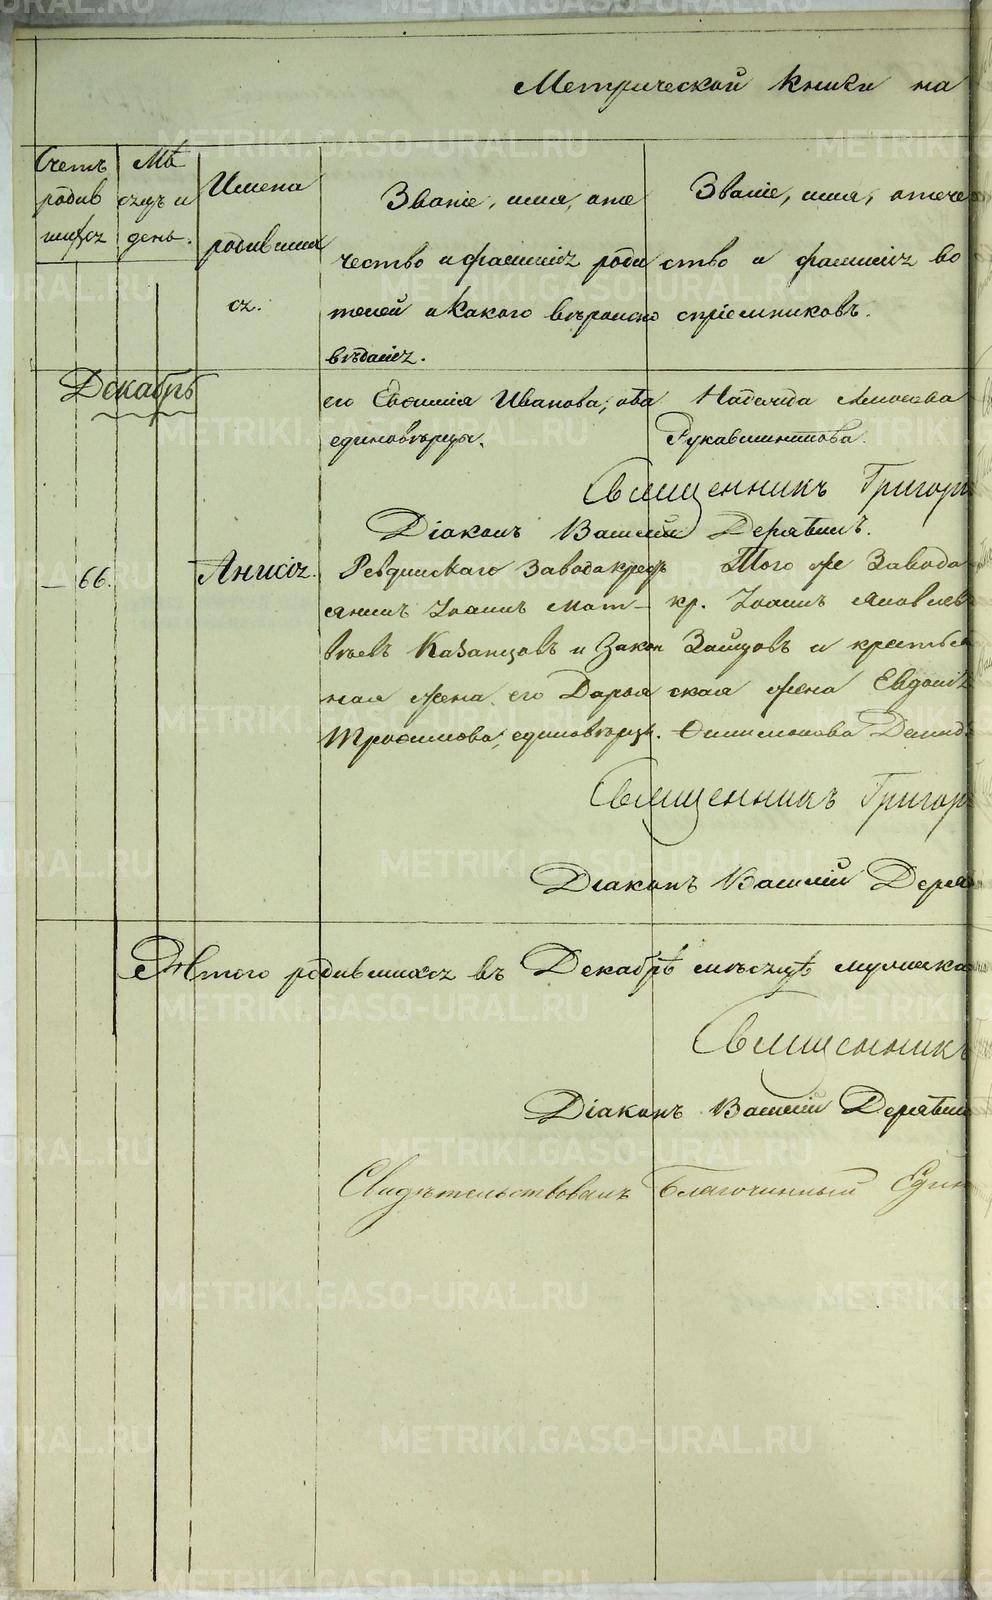 Метрической книги на
Счетъ
родив
шихся
Мѣ
сяцъ и
день.
Имена
родивших
ся.
Званіе, имя, оте
чество и фамилія роди
телей и какого вѣроиспо
вѣданія.
Званіе, имя, отече
ство и фамилія во
спріемниковъ.
Декабрь
его Евѳимія Иванова, оба
единовѣрцы.
Надежда
Рукавишникова.
Священникъ Григорі
Діаконъ Василій Дерябинъ.
— 66.
Анисія.
Ревдинскаго завода крестъ
янинъ Іоаннъ Мат-
вѣевъ Казанцовъ и закон
ная жена его Дарья
Трофимова, единовѣрцы.
Того же завода
кр. Іоаннъ Яковлевъ
Зайцовъ и крестья
ская жена Евдокія
Филимонова Демид
Священникъ Григорі
Діаконъ Василій Деряб
Итого родившихся въ Декабрѣ мѣсяцѣ мужска
Священникъ
Діаконъ Василій Дерябин
Свидѣтельствовалъ Благочинный Един
METRIKI.GASO-URAL.RU